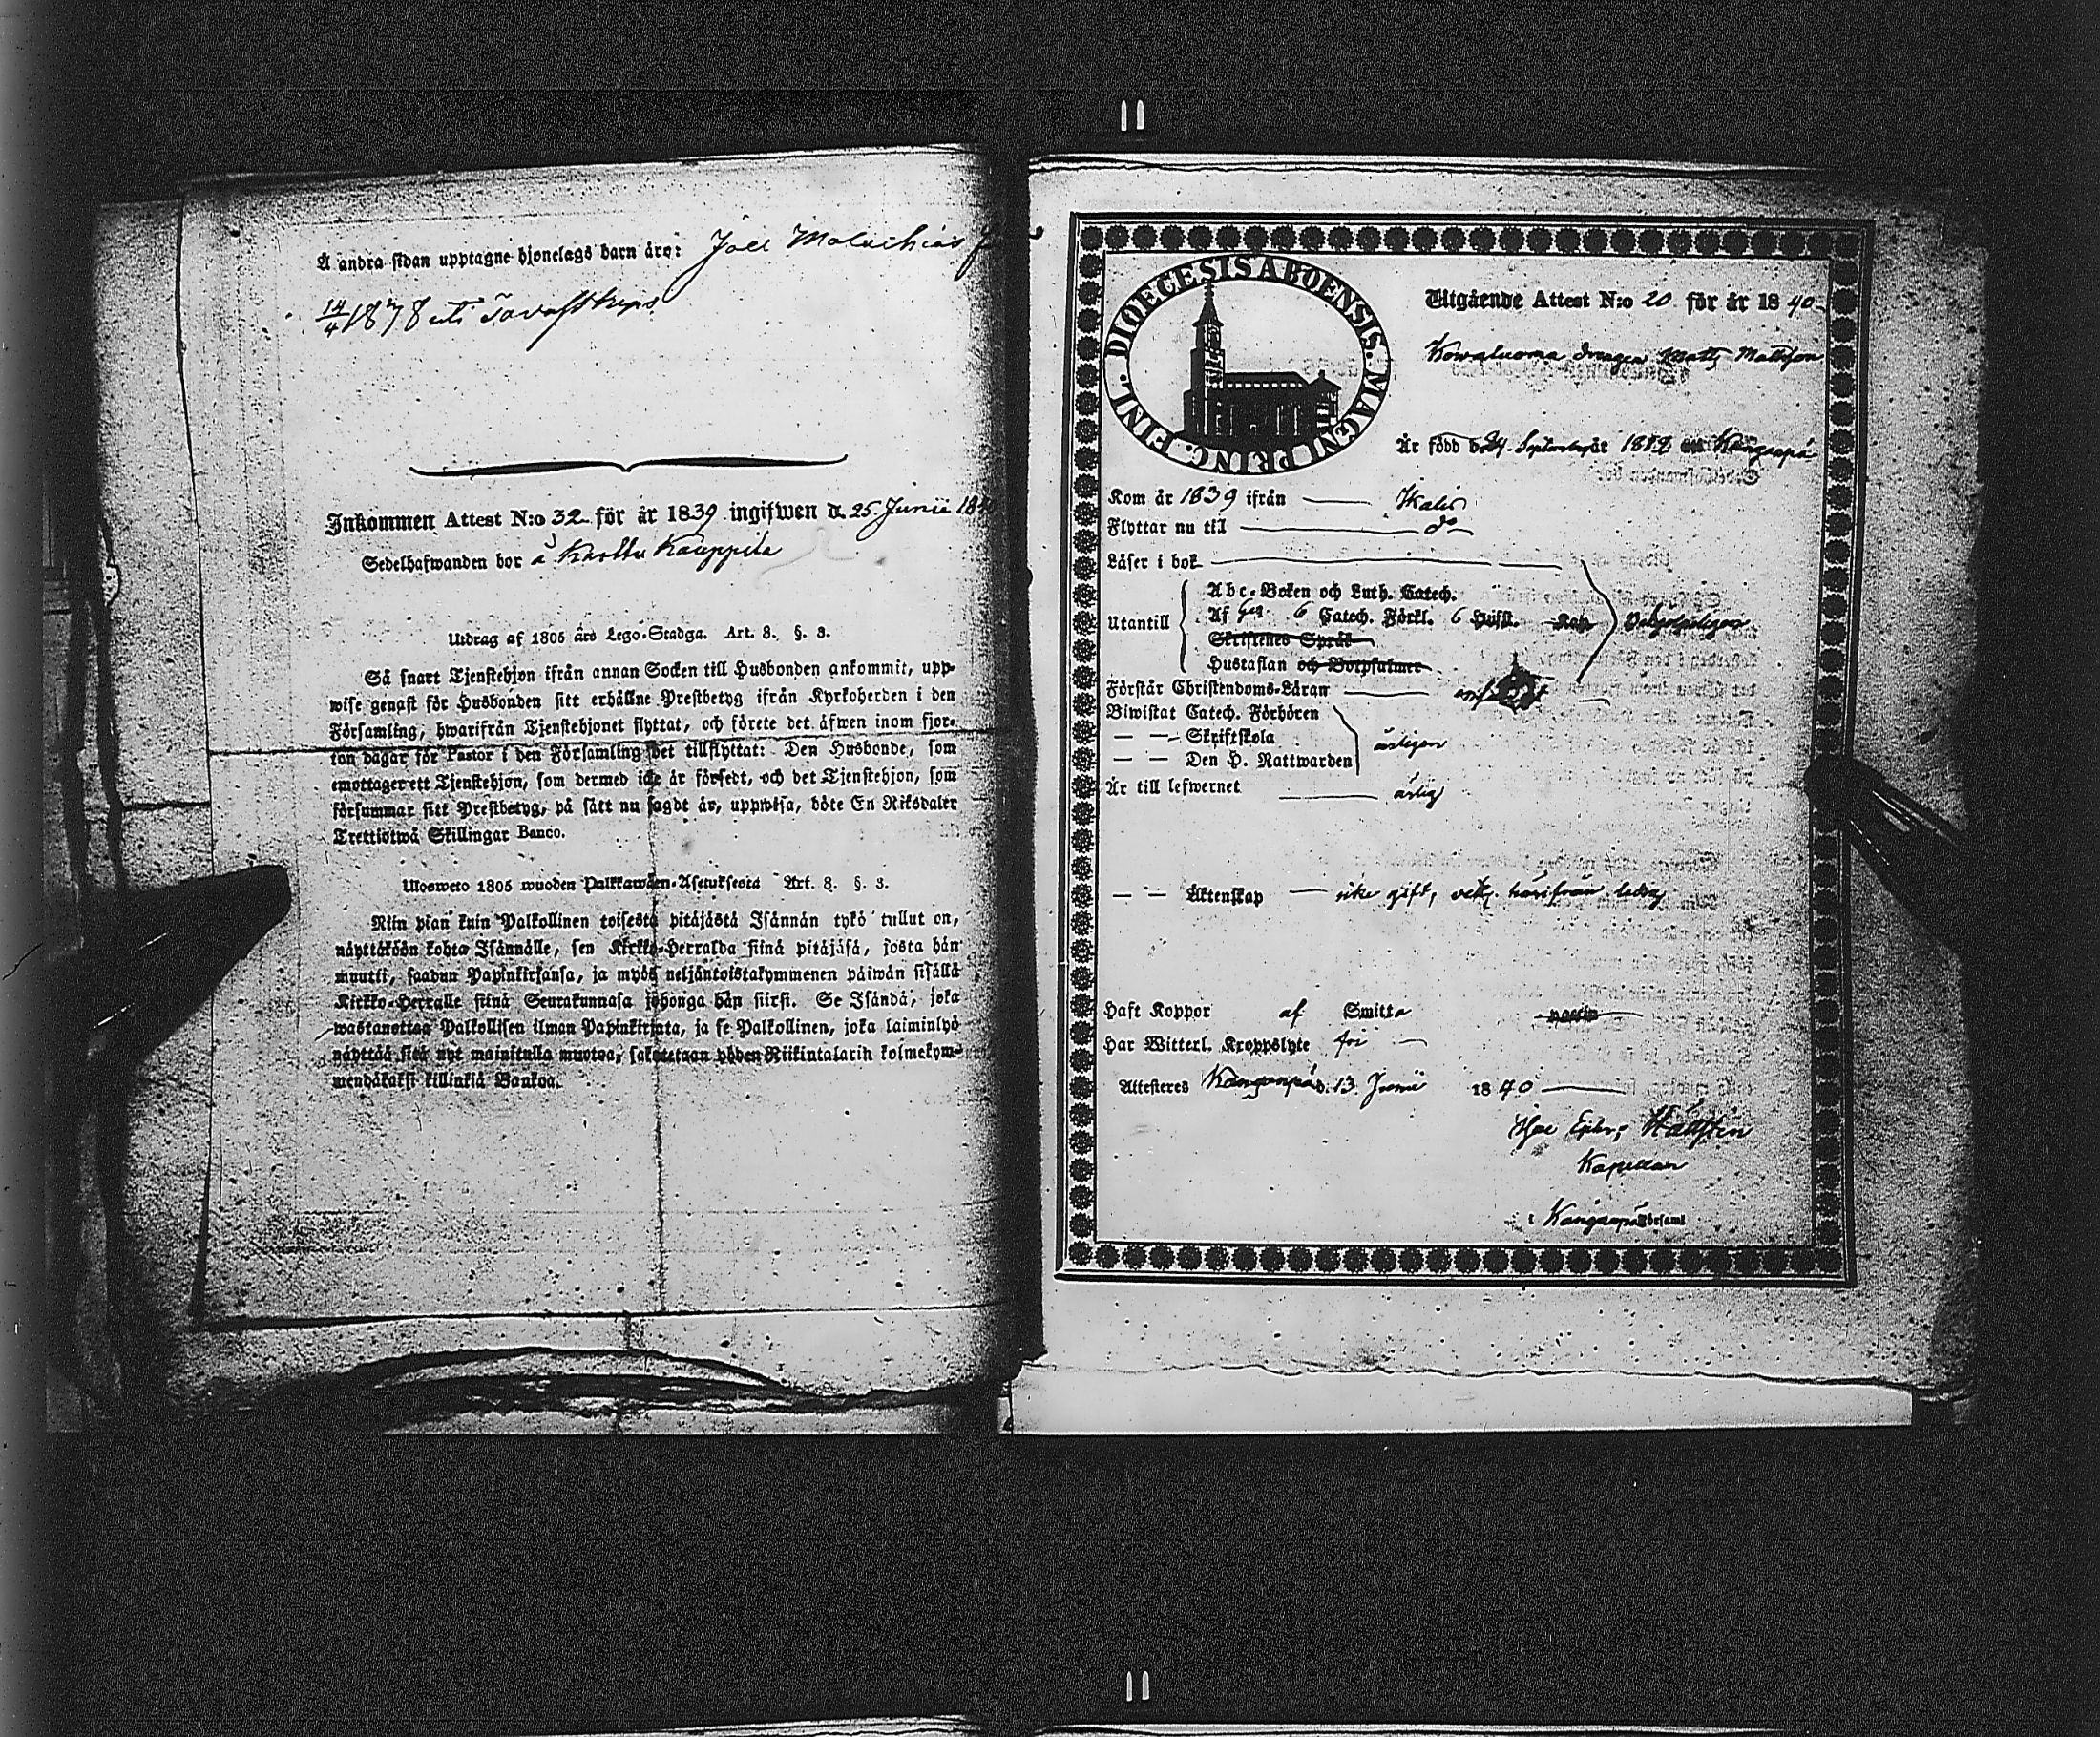 Å andra sidan upptagne hjonelags barn äro: Joel Malachias
14/4 18 78 uti Tavastkyro
Inkommen Attest N:o 32 för år 1839 ingifwen d. 25. Junii 184
Sedelhafwanden bor å Karttu Kauppila
Utdrag af 1805 års Lego-Stadga. Art. 8. §. 3.
Så snart Tjenstehjon ifrån annan Socken till Husbonden ankommit, upp-
wise genast för Husbonden sitt erhållne Prestbetyg ifrån Kyrkoherden i den
Församling, hwarifrån Tjenstehjonet flyttat, och förete det äfwen inom fjor-
ton dagar för Pastor i den Församling det tillflyttat: Den Husbonde, som
emottager ett Tjenstehjon, som dermed icke är försedt, och det Tjenstehjon, som
försummar sitt Prestbetyg, på sätt nu sagdt är, uppwisa, böte En Riksdaler
Trettiotwå Skillingar Banco.
Ulosweto 1805 wuoden Palkkawäen-Asetuksesta Art. 8. §. 3.
Niin pian kuin Palkollinen toisesta pitäjästä Isännän tykö tullut on,
näyttäköön kohta Isännälle, sen Kirkko-Herralda siinä pitäjäsä, josta hän
muutti, saadun Papinkirjansa, ja myös neljäntoistakymmenen päiwän sisällä
Kirkko-Herralle siinä Seurakunnasa johonga hän siirsi. Se Isändä, joka
wastanottaa Palkollisen ilman Papinkirjata, ja se Palkollinen, joka laiminlyö
näyttää sitä nyt mainitulla muotoa, sakotetaan yhden Riikintalarin kolmekym-
mendäkaksi killinkiä Bankoa.
DIOECESIS ABOENSIS. MAGNI PRINC. FINL.
Utgående Attest N:o 20 för år 1840
Kowaluoma drengen Matts Mattsson
Är född d. 24. September år 1812 Kangaspä
Kom år 1839 ifrån Ikalis
Flyttar nu till do
Läser i bok
Abc-Boken och Luth. Catech.
Utantill Af 6 Catech. Förkl. 6 Hufst.
Skriftenes Språk
Hustaflan och Botpsalmer
Förstår Christendoms-Läran
Biwistat Catech. Förhören
— — Skriftskola årligen
— — Den H. Nattwarden
Är till lefwernet ärlig
— — Äktenskap icke gift, härifrån ledig
Haft Koppor af Smitta
Har Witterl. Kroppslyte
Attesteres Kangaspä d. 13. Junii 1840
Hällsten
Kapellan
i Kangaspä Församl